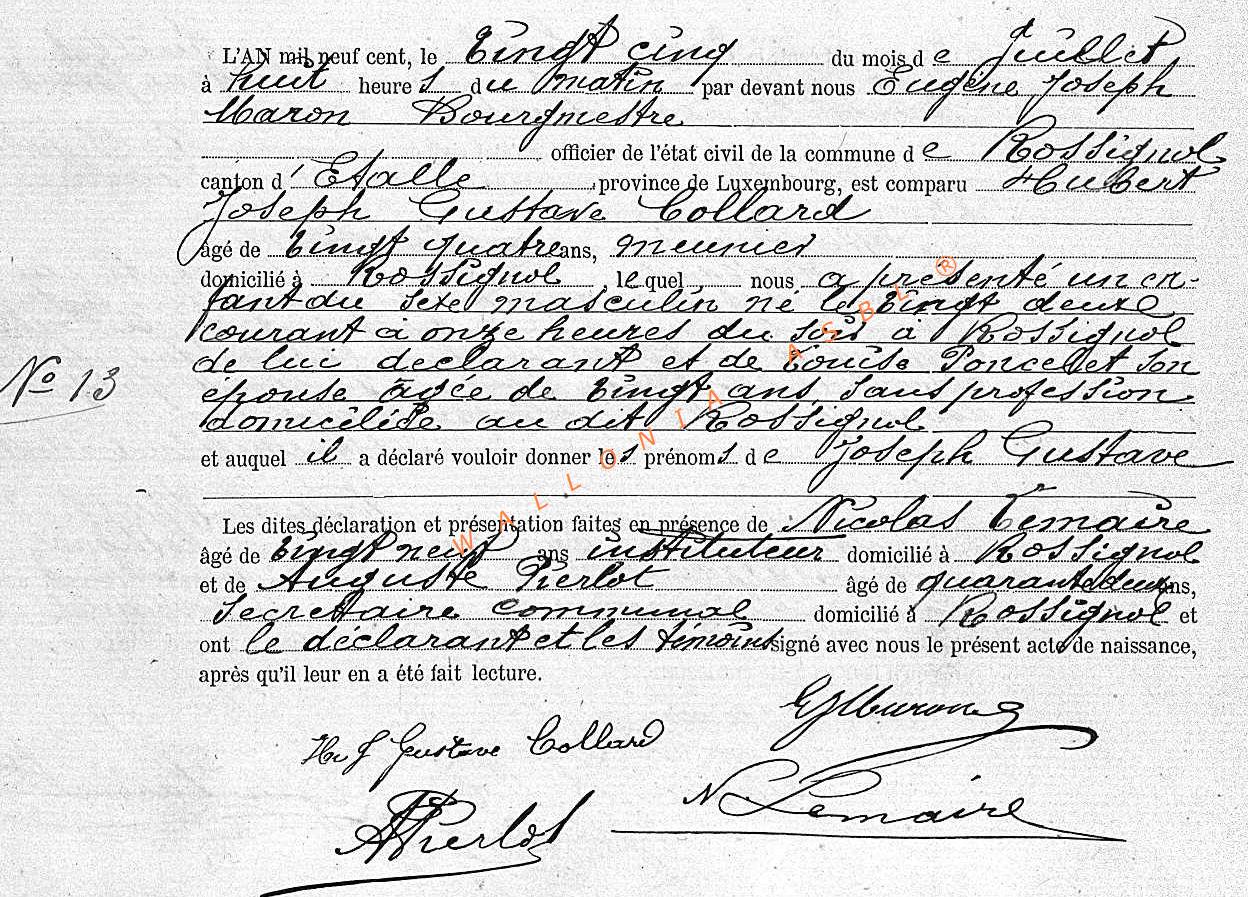 L'AN mil neuf cent, le Vingt cinq du mois de Juillet
à huit heures du matin par devant nous Eugène Joseph
Maron Bourgmestre
officier de l'état civil de la commune de Rossignol
canton d'Etalle, province de Luxembourg, est comparu Hubert
Joseph Gustave Collard
âgé de vingt quatre ans, meunier
domicilié à Rossignol, lequel nous a présenté un en-
fant du sexe masculin né le vingt deux
courant à onze heures du soir à Rossignol
de lui declarant et de Louise Poncelet son
épouse agée de vingt ans, sans profession
domiciliée au dit Rossignol
et auquel il a déclaré vouloir donner les prénoms de Joseph Gustave
Nº 13
Les dites déclaration et présentation faites en présence de Nicolas Lemaire
âgé de vingt neuf ans instituteur domicilié à Rossignol
et de Auguste Pierlot âgé de quarante deux ans,
Secrétaire communal domicilié à Rossignol et
ont le déclarant et les témoins signé avec nous le présent acte de naissance,
après qu'il leur en a été fait lecture.
EJMaron
Hu J Gustave Collard
N Lemaire
APierlot
WALLONIA ASBL ®